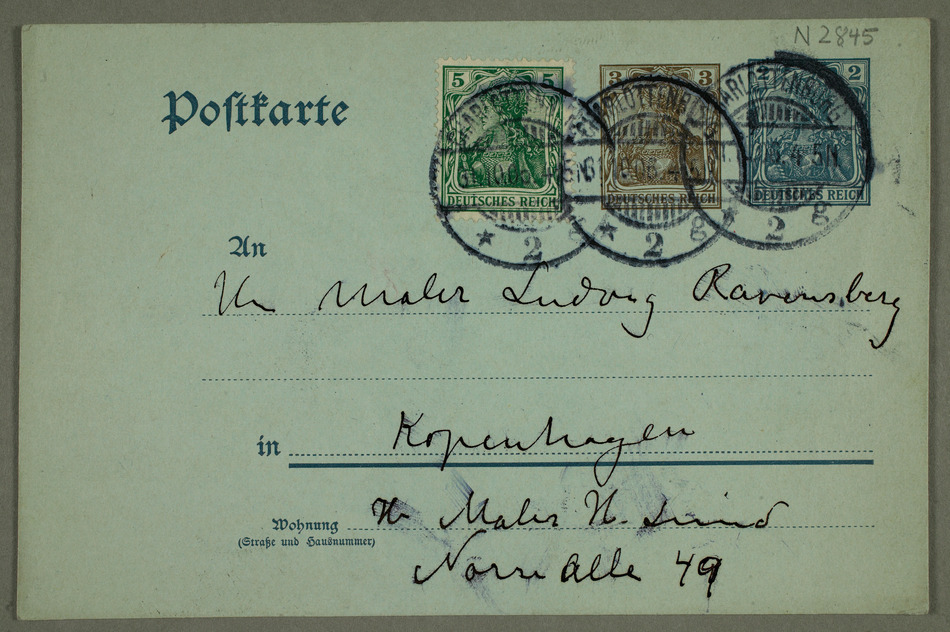 N 2845
Postkarte
5 5
DEUTSCHES REICH
3 3
DEUTSCHES REICH
2 2
DEUTSCHES REICH
CHARLOTTENBURG
* 2 g
CHARLOTTENBURG
* 2 g
CHARLOTTENBURG
* 2 g
An
Hr Maler Ludwig Ravensberg
in Kopenhagen
Wohnung
(Straße und Hausnummer)
Hr Maler H.
Norre Alle 49